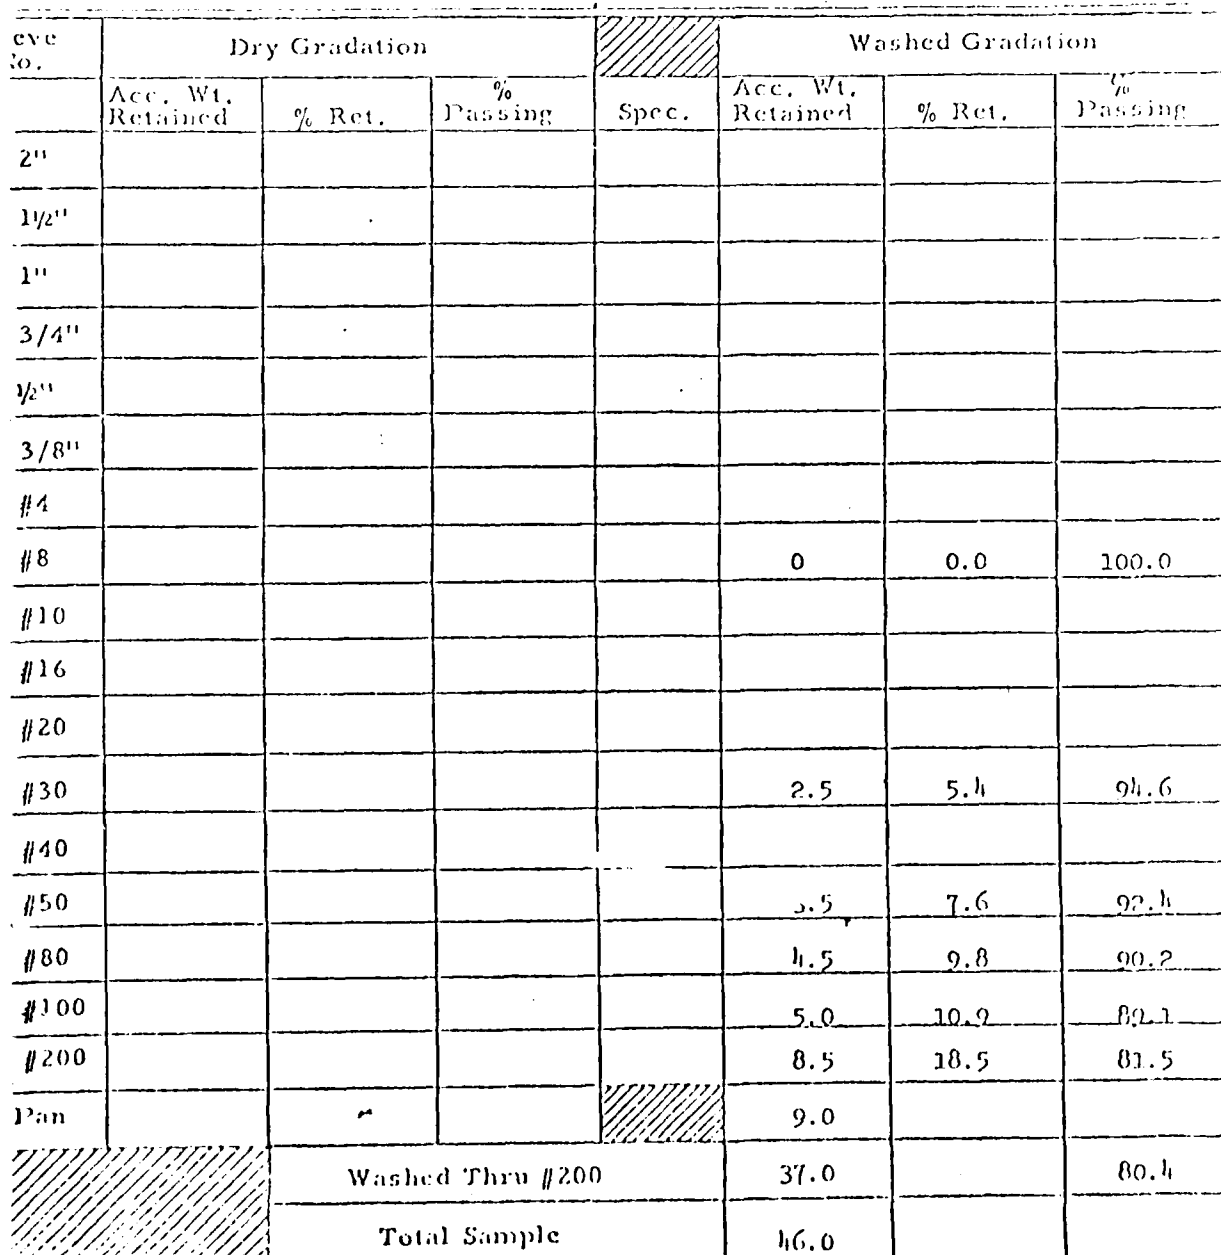 eve Dry Gradation Washed Gradation
o.
Acc. Wt. Retained % Ret. % Passing Spec. Acc. Wt. Retained % Ret. % Passing
2"
1½"
1"
3/4"
½"
3/8"
#4
#8 0 0.0 100.0
#10
#16
#20
#30 2.5 5.4 94.6
#40
#50 .5 7.6 92.4
#80 4.5 9.8 90.2
#100 5.0 10.9 89.1
#200 8.5 18.5 81.5
Pan 9.0
Washed Thru #200 37.0 80.4
Total Sample 46.0